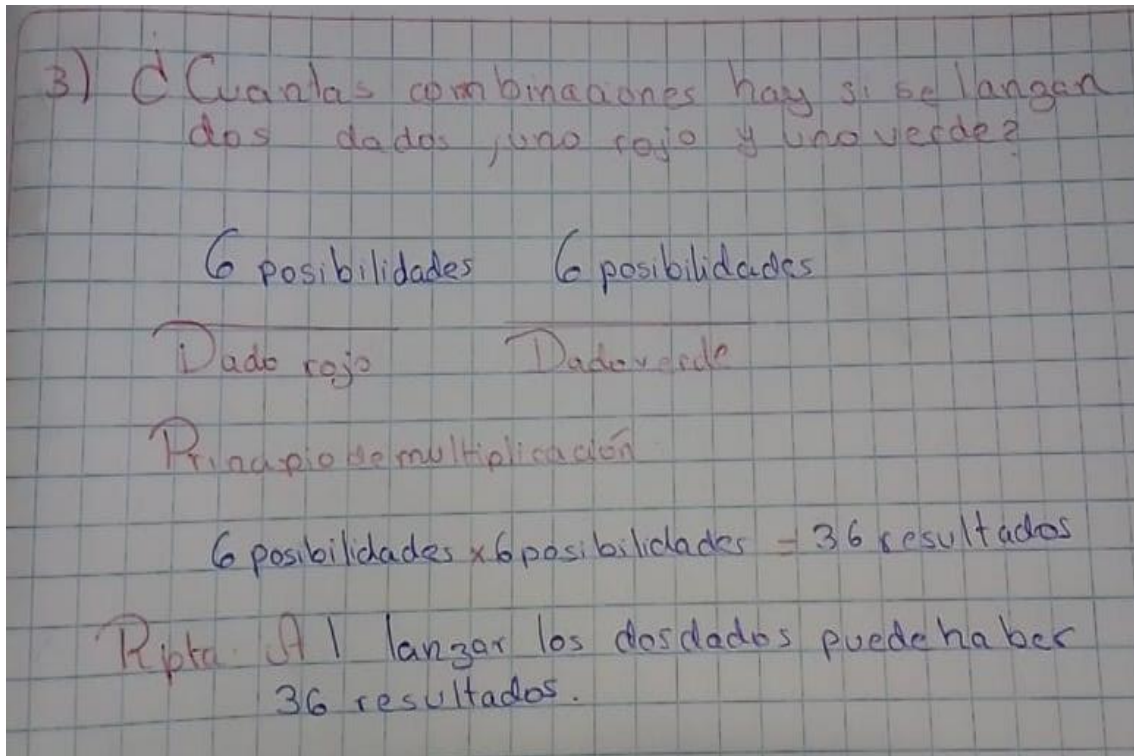 3) ¿Cuantas combinaciones hay si se lanzan
dos dados, uno rojo y uno verde?
6 posibilidades 6 posibilidades
Dado rojo Dado verde
Principio de multiplicación
6 posibilidades x 6 posibilidades = 36 resultados
Rpta. Al lanzar los dos dados puede haber
36 resultados.